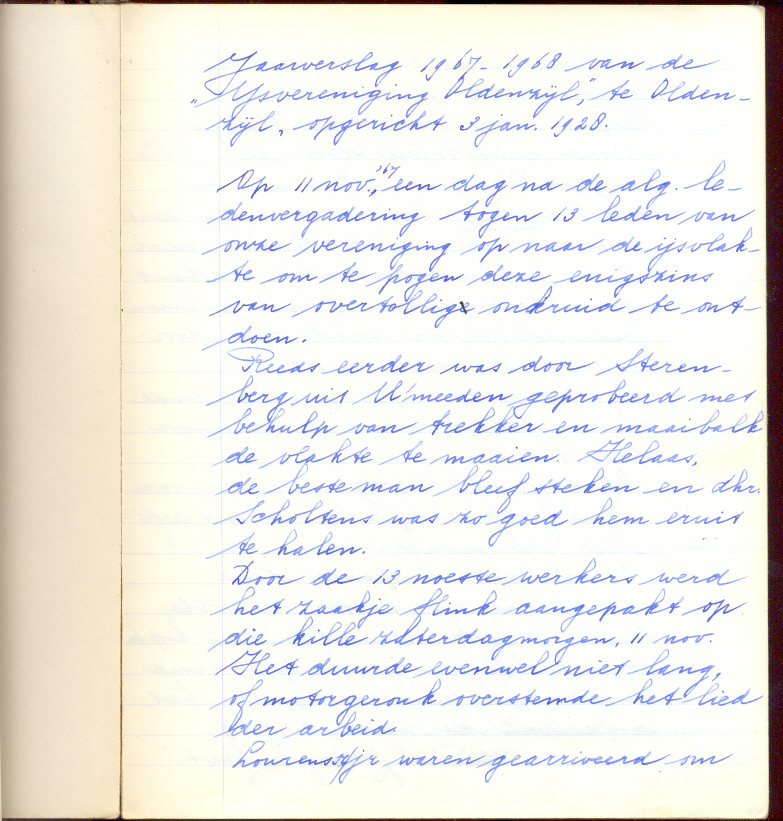 Jaarverslag 1967-1968 van de
„IJsvereniging Oldenzijl", te Olden-
zijl, opgericht 3 jan. 1928.
Op 11 nov. '67, een dag na de alg. le-
denvergadering togen 13 leden van
onze vereniging op naar de ijsvlak-
te om te pogen deze enigszins
van overtollig onkruid te ont-
doen.
Reeds eerder was door Steren-
berg uit U'meeden geprobeerd met
behulp van trekker en maaibalk
de vlakte te maaien. Helaas,
de beste man bleef steken en dhr.
Scholtens was zo goed hem eruit
te halen.
Door de 13 noeste werkers werd
het zaakje flink aangepakt op
die kille zaterdagmorgen, 11 nov.
Het duurde evenwel niet lang,
of motorgeronk overstemde het lied
der arbeid.
Lourens jr waren gearriveerd om